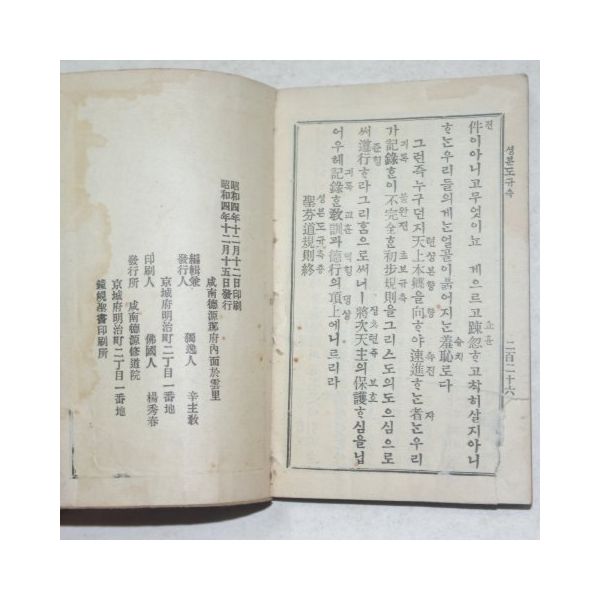 성분도규측
二百二十六
件이아니고무엇이뇨 게으르고踈忽ᄒᆞ고착히살지아니
ᄒᆞᄂᆞᆫ우리들의게ᄂᆞᆫ얼골이붉어지ᄂᆞᆫ羞恥로다
그런즉누구던지天上本鄕을向ᄒᆞ야速進ᄒᆞᄂᆞᆫ者ᄂᆞᆫ우리
가記錄ᄒᆞᆫ이不完全ᄒᆞᆫ初步規則을그리스도의도으심으로
써遵行ᄒᆞ라그리ᄒᆞᆷ으로써너ㅣ將次天主의保護ᄒᆞ심을닙
어우헤記錄ᄒᆞᆫ敎訓과德行의頂上에니르리라
성분도규측죵
聖芬道規則終
昭和四年十二月十二日印刷
昭和四年十二月十五日發行
咸南德源郡府內面於雲里
編輯兼發行人 獨逸人 辛主敎
京城府明治町二丁目一番地
印刷人 佛國人 楊秀春
發行所 咸南德源修道院
京城府明治町二丁目一番地
鐘峴聖書印刷所